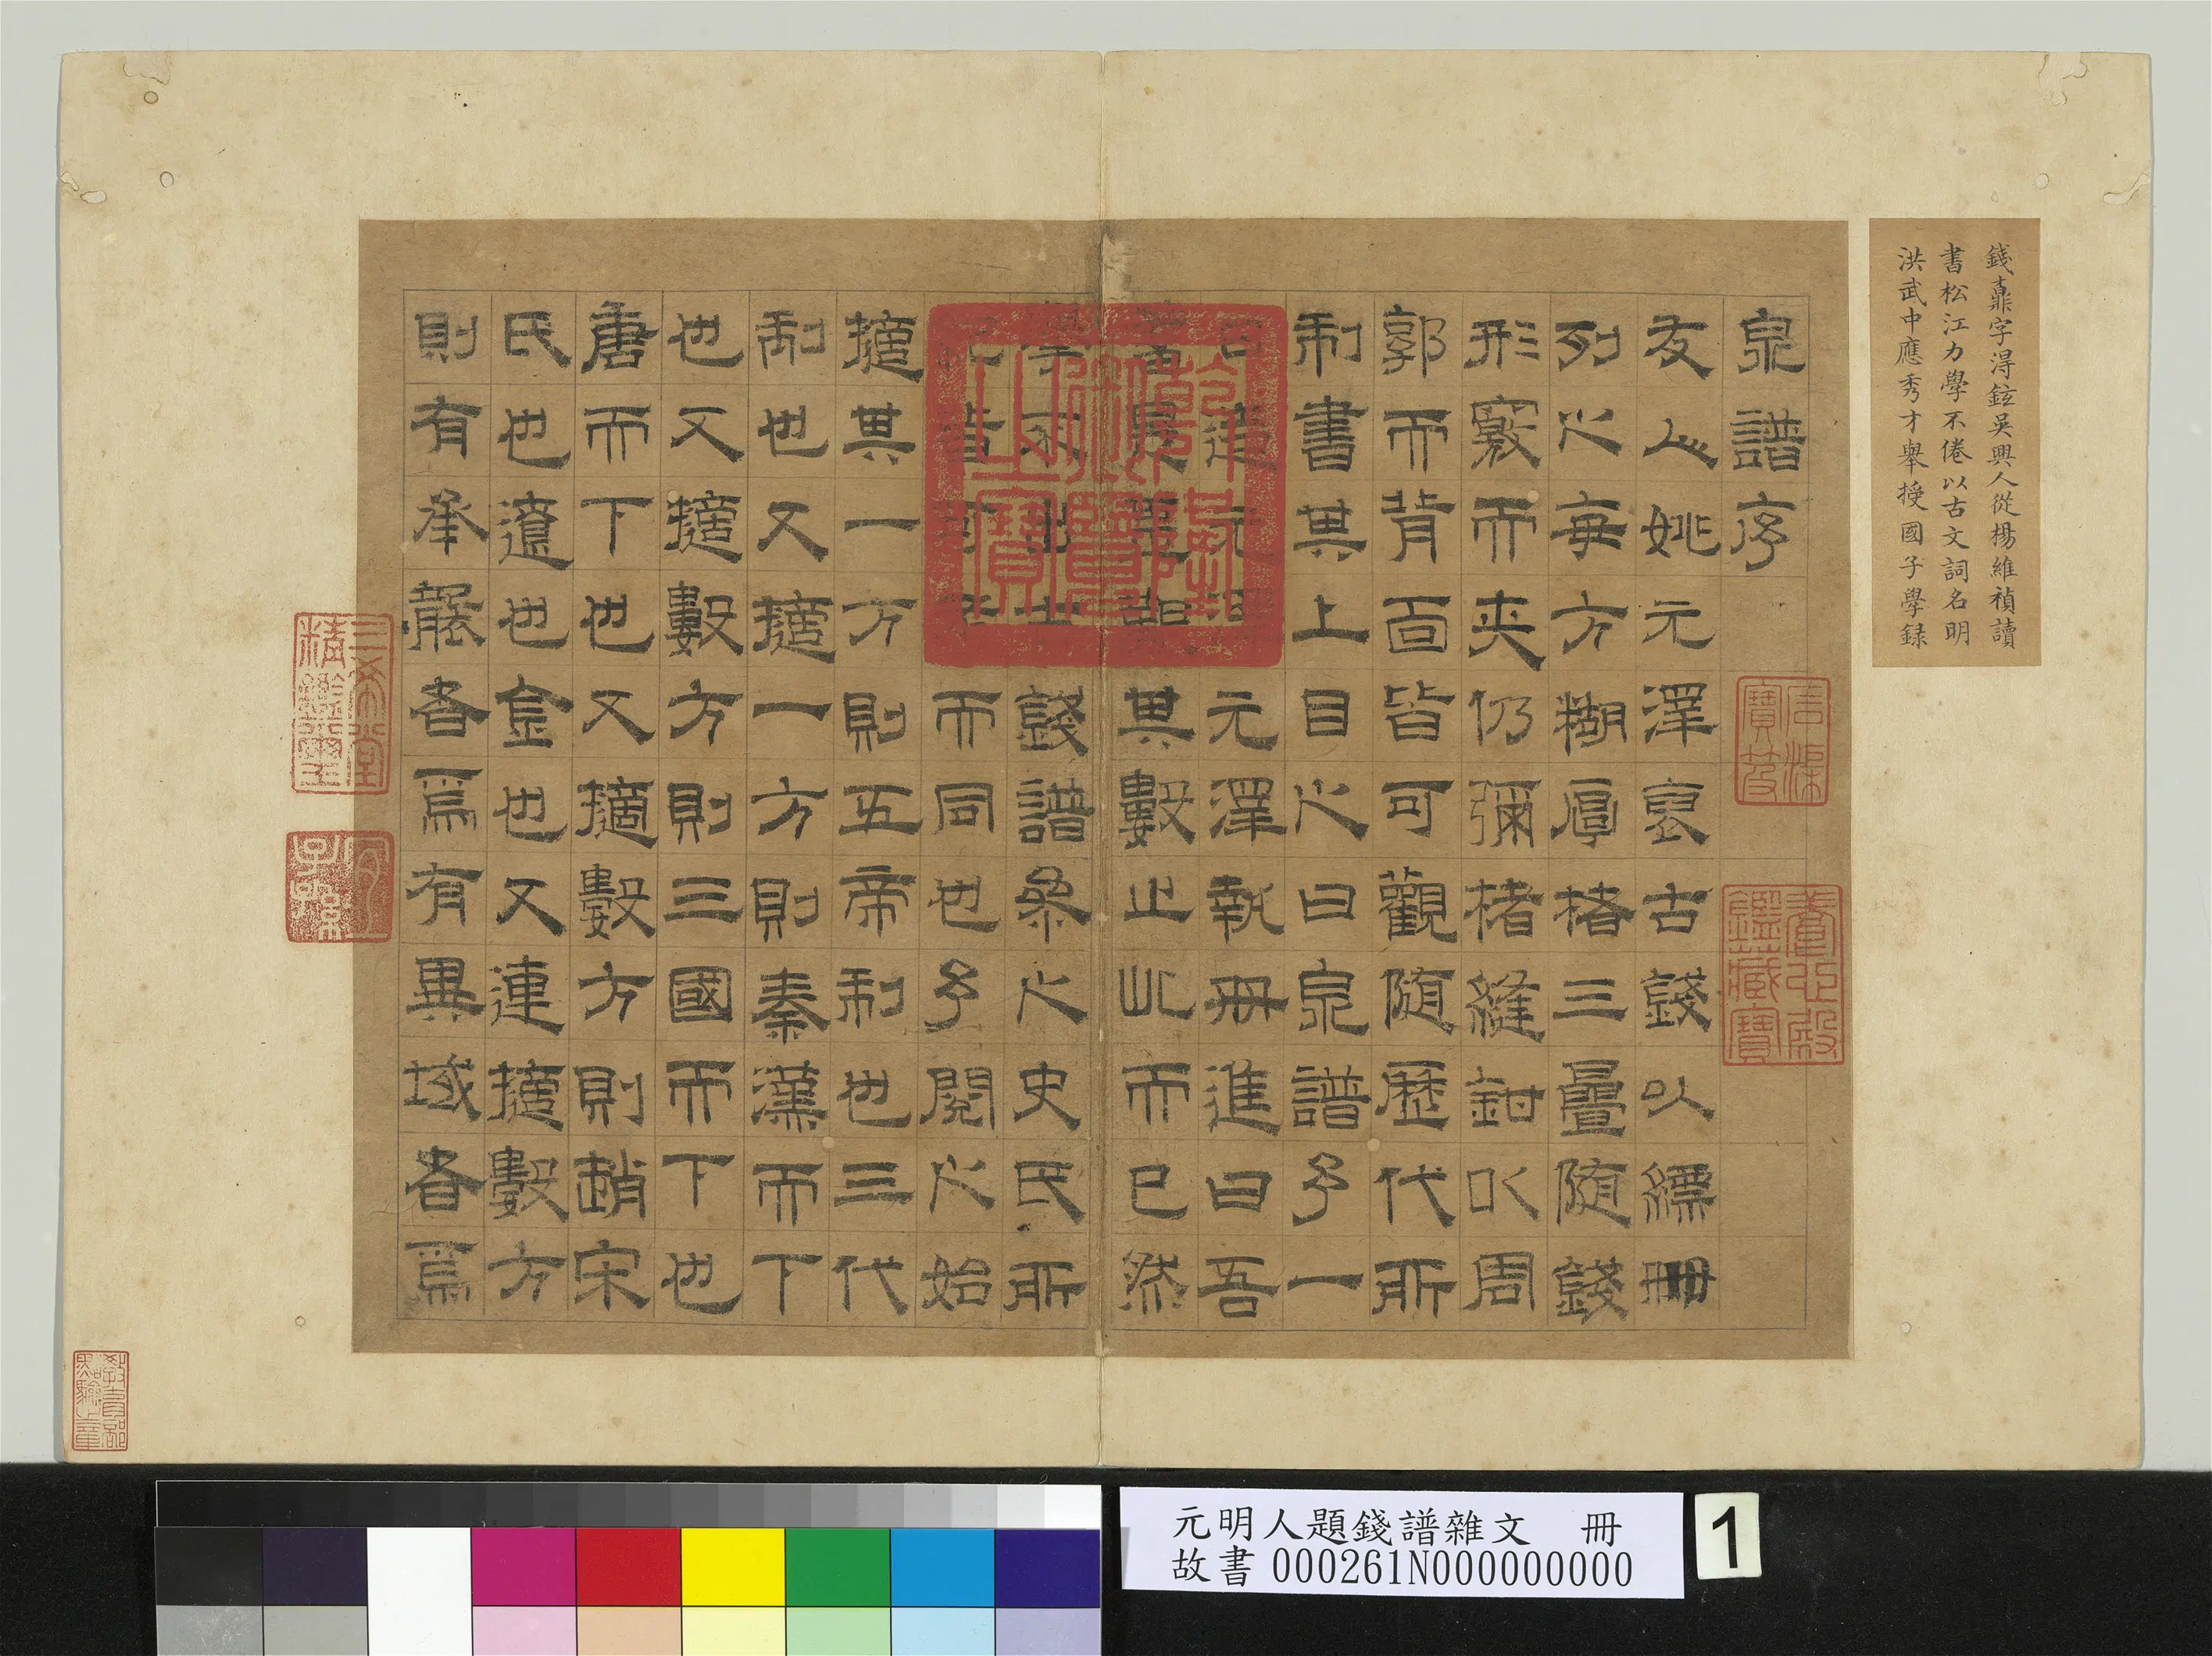 錢鼒字淂鉉吳興人從楊維禎讀
書松江力學不倦以古文詞名明
洪武中應秀才舉授國子學録
泉譜序
友人姚元澤裒古錢以縹冊
列之每方糊厚楮三疊隨錢
形竅而夾仍彌楮縫鉗以周
郭而背面皆可觀隨歷代所
制書其上目之曰泉譜予一
日造元元澤執冊進曰吾
其數止此而已然
錢譜參之史氏所
而同也予閱之始
擿其一方則五帝制也三代
制也又擿一方則秦漢而下
也又擿數方則三國而下也
唐而下也又擿數方則趙宋
氏也遼也金也又連擿數方
則有承襲者為有異域者為
乾隆御覽之寶
石渠寶笈
養心殿鑑藏寶
三希堂精鑒璽
宜子孫
教育部點驗之章
元明人題錢譜雜文 冊
故書 000261N000000000
1